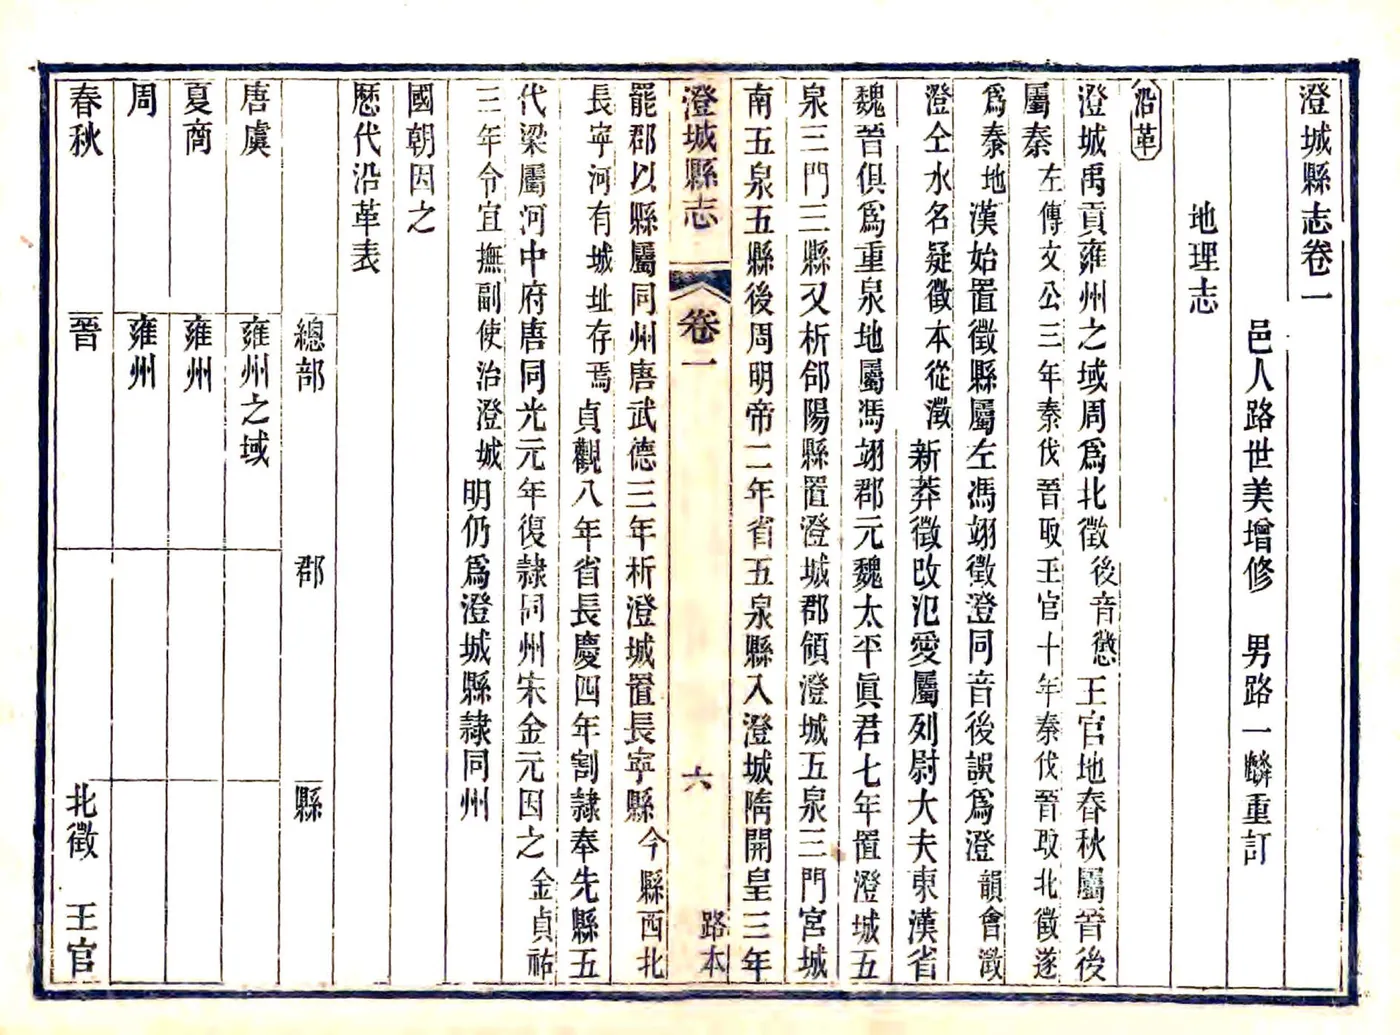 澄城縣志卷一
邑人路世美增修　男路一麟重訂
地理志
沿革
澄城禹貢雍州之域周爲北徵後音懲王官地春秋屬晉後
屬秦左傳文公三年秦伐晉取王官十年秦伐晉取北徵遂
爲秦地漢始置徵縣屬左馮翊徵澄同音後誤爲澄韻會澂
澄仝水名疑徵本從澂新莽徵改氾愛屬列尉大夫東漢省
魏晉俱爲重泉地屬馮翊郡元魏太平眞君七年置澄城五
泉三門三縣又析郃陽縣置澄城郡領澄城五泉三門宮城
南五泉五縣後周明帝二年省五泉縣入澄城隋開皇三年
澄城縣志　卷一　六　路本
罷郡以縣屬同州唐武德三年析澄城置長寧縣今縣西北
長寧河有城址存焉貞觀八年省長慶四年割隷奉先縣五
代梁屬河中府唐同光元年復隷同州宋金元因之金貞祐
三年令宜撫副使治澄城明仍爲澄城縣隷同州
國朝因之
歷代沿革表
總部　郡　縣
唐虞　雍州之域
夏商　雍州
周　雍州
春秋　晉　北徵　王官